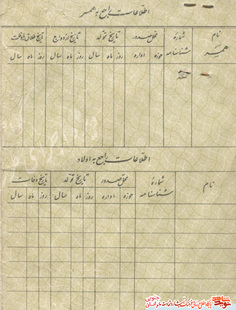 اطلاعات راجع به همسر
نام همسر شماره شناسنامه محل صدور تاریخ تولد تاریخ ازدواج تاریخ طلاق یا فوت
حوزه اداره روز ماه سال روز ماه سال روز ماه سال
اطلاعات راجع به اولاد
نام شماره شناسنامه محل صدور تاریخ تولد تاریخ وفات
حوزه اداره روز ماه سال روز ماه سال